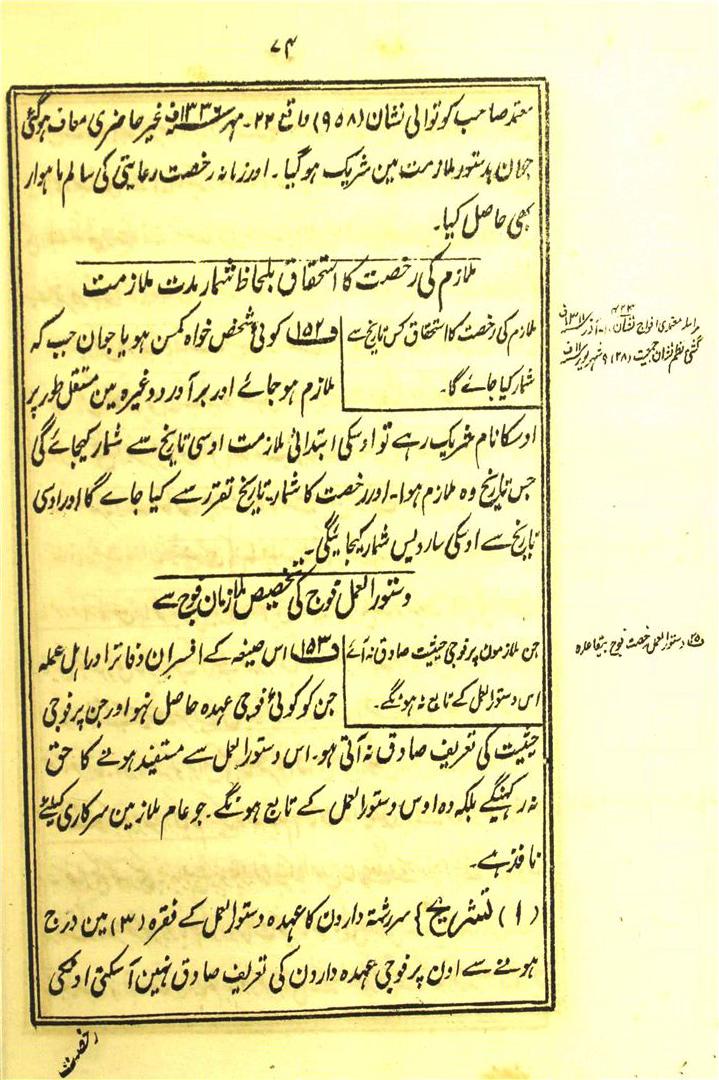 ۷۴
معتمد صاحب کوتوالی نشان (۹۵۸) واقع ۲۲۔ مہر ۱۳۳۶ف غیر حاضری معاف ہوگئی
جوان بدستور ملازمت مین شریک ہوگیا ۔ اور زمانہ رخصت رعایتی کی سالم ماہوار
بھی حاصل کیا۔
ملازم کی رخصت کا استحقاق بلحاظ شمار مدت ملازمت
ملازم کی رخصت کا استحقاق کس تاریخ سے
شمار کیا جائے گا۔
ف۱۵۲ کوئی شخص خواہ کمسن ہو یا جوان جب کہ
ملازم ہو جائے اور برآورد وغیرہ مین مستقل طور پر
اوسکا نام شریک رہے تو اوسکی ابتدائی ملازمت اوسی تاریخ سے شمار کیجائے گی
جس تاریخ وہ ملازم ہوا۔ اور رخصت کا شمار تاریخ تقرر سے کیا جاے گا اور اوسی
تاریخ سے اوسکی سارویس شمار کیجائیگی۔
مراسلہ معتمدی افواج نشان
گشتی نظم نشان جمعیت (۲۸) ۹ شہریور
دستور العمل فوج کی تخصیص ملازمان فوج سے
جن ملازمون پر فوجی حیثیت صادق نہ آئے
اس دستور العمل کے تابع نہ ہونگے۔
ف۱۵۳ اس صیغہ کے افسران دفاتر اور اہل عملہ
جن کو کوئی فوجی عہدہ حاصل نہو اور جن پر فوجی
حیثیت کی تعریف صادق نہ آتی ہو۔ اس دستور العمل سے مستفید ہونے کا حق
نہ رکہینگے بلکہ وہ اوس دستور العمل کے تابع ہونگے۔ جو عام ملازمین سرکاری کیلئے
نافذ ہے۔
دستور العمل رخصت فوج بیقاعدہ
(۱) تشریح } سررشتہ دارون کا عہدہ دستور العمل کے فقرہ (۳) مین درج
ہونے سے اون پر فوجی عہدہ دارون کی تعریف صادق نہین آسکتی اونکی
رخصت